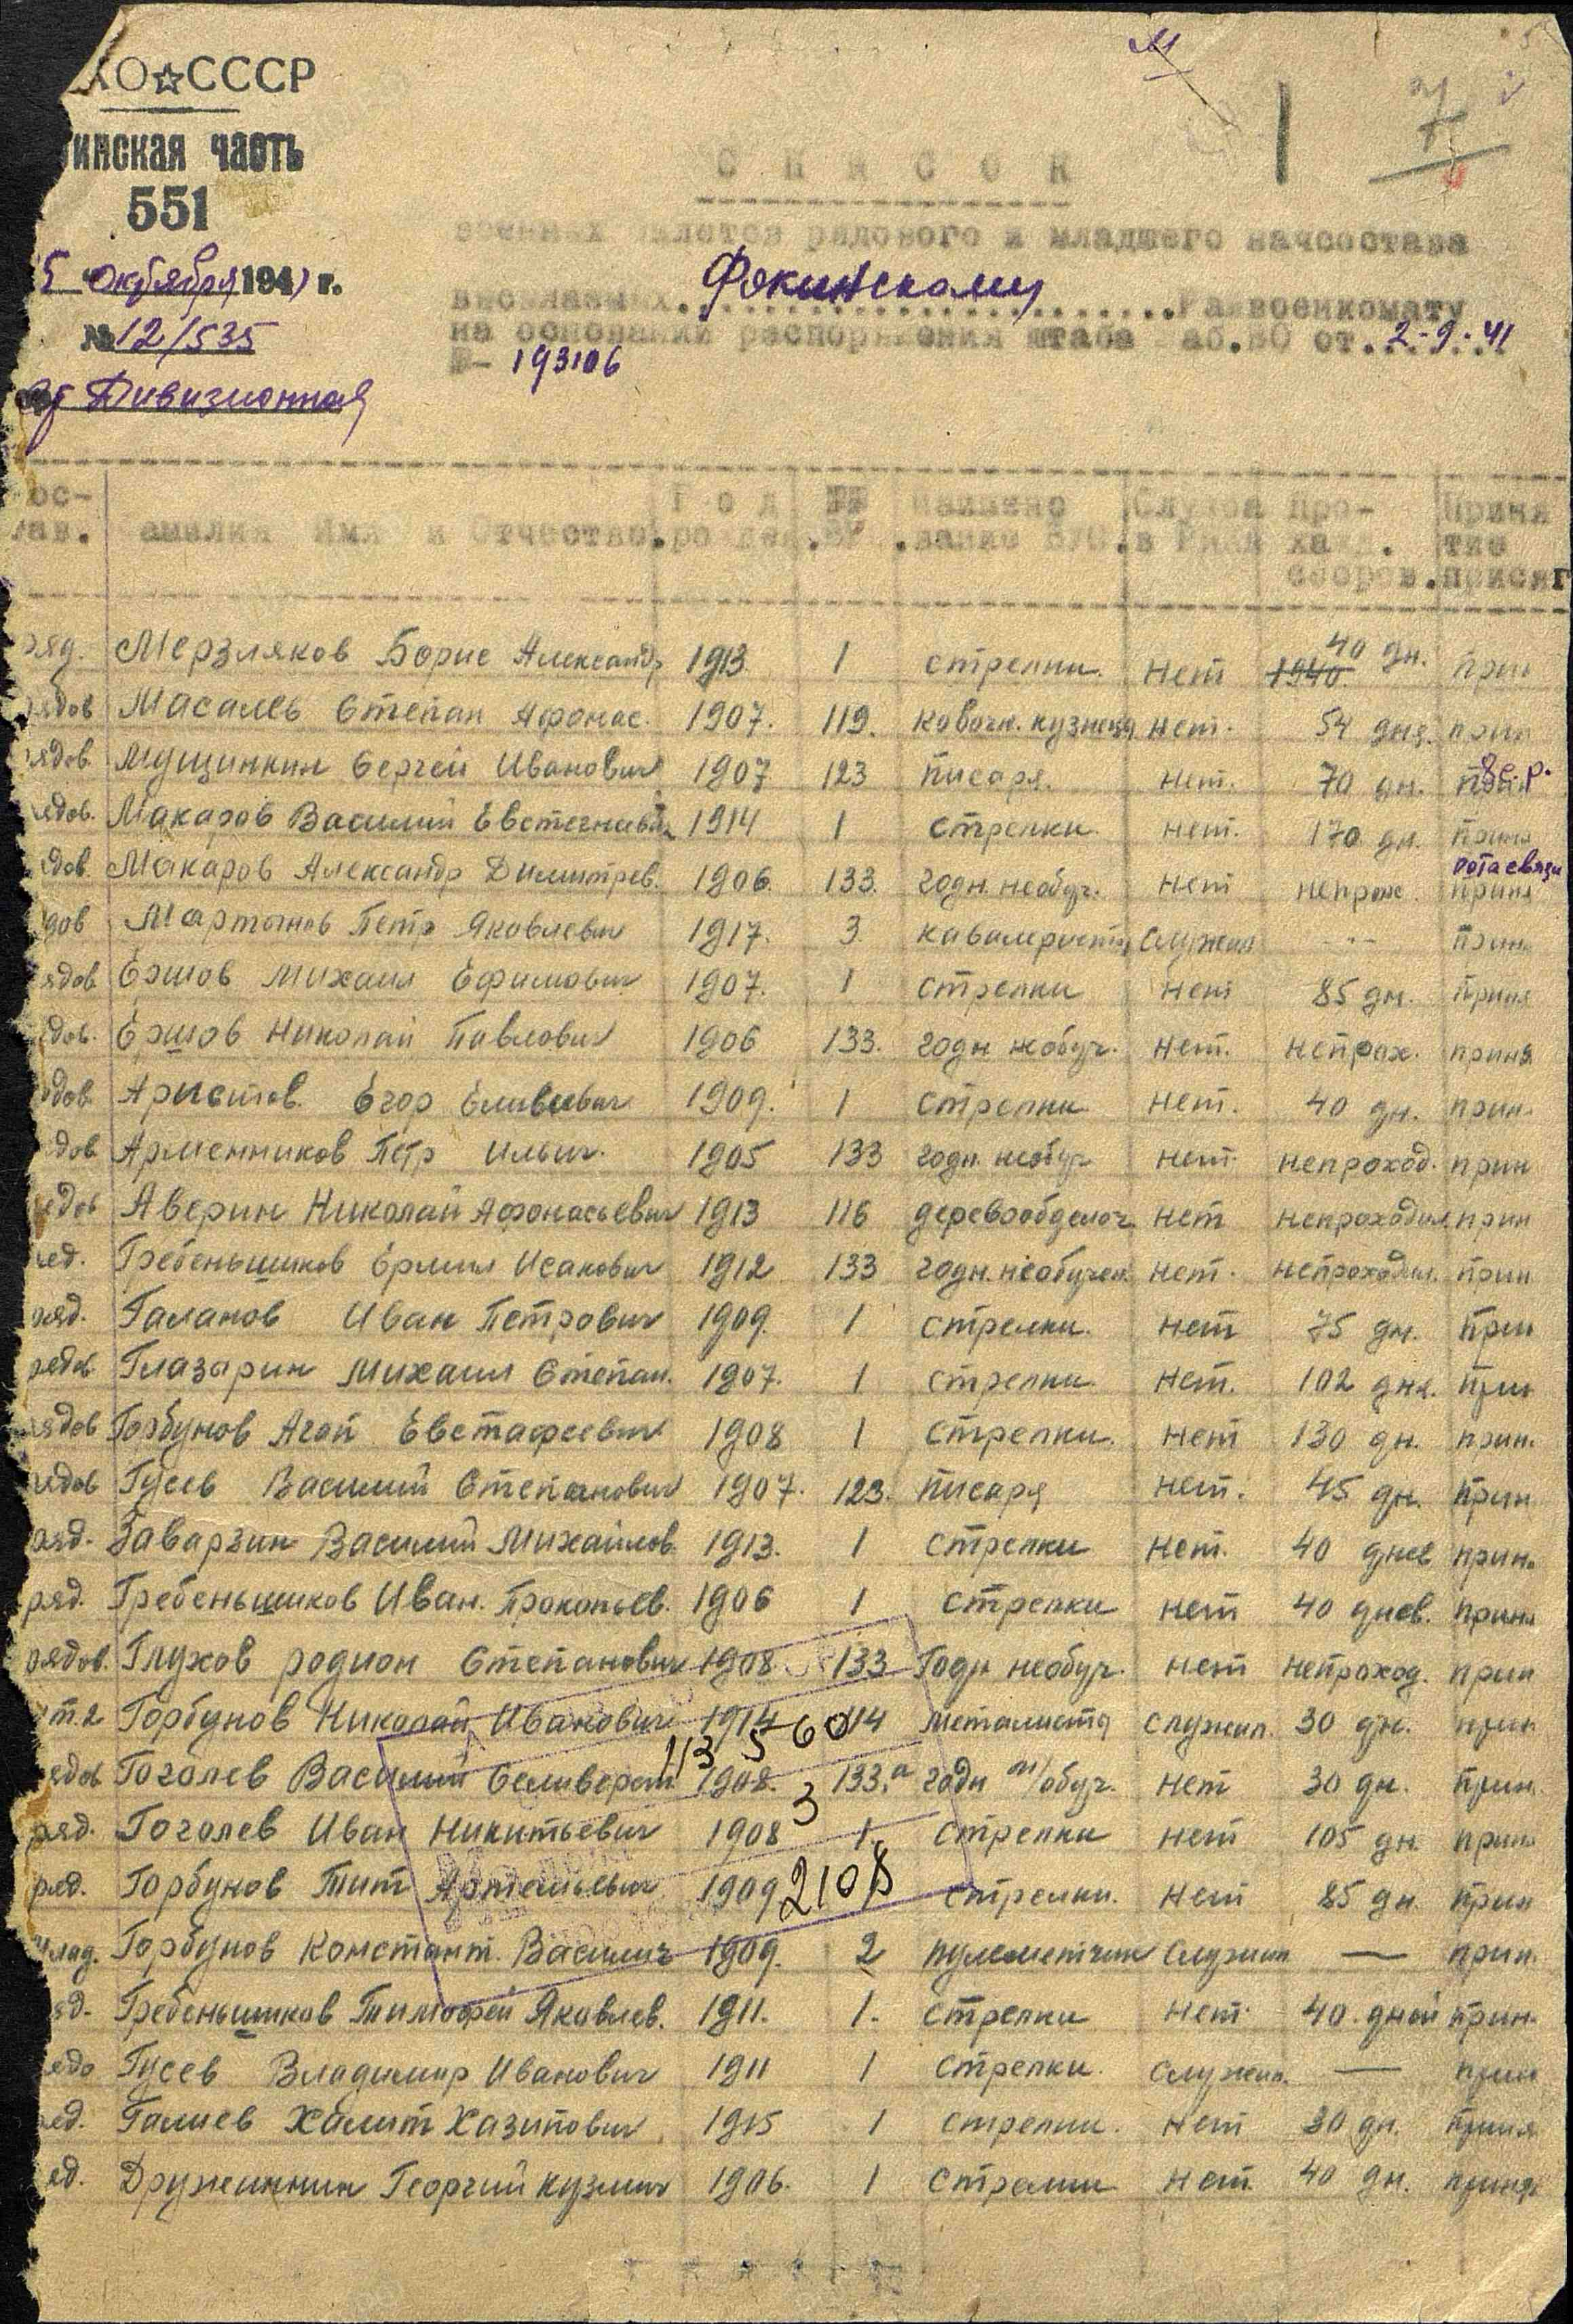 КО☆СССР
инская часть
551
5 октября 1941 г.
№ 12/535
Дивизионная
7
СПИСОК
военных билетов рядового и младшего начсостава
высланных Фокинскому Райвоенкомату
на основании распоряжения штаба аб.ВО от 2-9-41
№- 193106
ос- амилия Имя и Отчество. Год Наимено Служба Про- Приня
тав. рожден. ВУС. вание ВУС. в РККА хожд. тие
сборов. присяг
ряд. Мерзляков Борис Александр 1913 1 стрелки. Нет 1940 40 дн. прин
рядов Масалев Степан Афонас. 1907. 119. ковочн. кузнецы нет. 54 дня. прин
рядов. Мущинкин Сергей Иванович 1907 123 писаря. нет. 70 дн.
ядов. Макаров Василий 1914 1 стрелки. нет. 170 дн. прин
рота связи
дов. Макаров Александр Димитрев. 1906. 133. годн. необуч. нет непрох. приня
дов Мартынов Петр Яковлевич 1917. 3. кавалеристы Служил --- прин
ядов Ершов Михаил Ефимович 1907. 1 стрелки Нет 85 дн. приня
дов. Ершов Николай Павлович 1906 133. годн необуч. нет. непрох. приня
дов. Аристов Егор 1909. 1 стрелки нет. 40 дн. прин.
дов Арменников Петр Ильич. 1905 133 годн. необуч нет. непроход. прин
дов Аверин Николай Афонасьевич 1913 116 деревообделоч нет непроходил прин
ед. Гребеньшиков Ермил Исакович 1912 133 годн. необучен. нет. непроходил. прин
ряд. Галанов Иван Петрович 1909. 1 стрелки. нет 75 дн. прин
рядов Глазырин Михаил Степан. 1907. 1 стрелки. нет. 102 дня. прин
рядов Горбунов Агап Евстафеевич 1908 1 стрелки. нет 130 дн. прин.
рядов Гусев Василий Степанович 1907. 123. писаря нет. 45 дн. прин
ряд. Гаварзин Василий Михайлов. 1913. 1 стрелки нет. 40 днев прин.
ряд. Гребеньшиков Иван. Прокопьев. 1906 1 стрелки нет 40 днев. прин
рядов. Глухов родион Степанович 1908. 133 Годн необуч. нет непроход. прин
т.2 Горбунов Николай Иванович 1914 114 металисты служил. 30 дн. прин
11 3 5 60
ядов Гоголев Василий Селиверст. 1908. 133.а годн м/обуч. нет 30 дн. прин.
3
ряд. Гоголев Иван Никитьевич 1908 1. стрелки нет 105 дн. прин
ряд. Горбунов Тит Артемьевич 1909 стрелки. нет 85 дн. прин
2108
млад. Горбунов Констант. Василич 1909. 2 пулеметчик Служил — прин.
яд. Гребеньшиков Тимофей Яковлев. 1911. 1. стрелки нет. 40. дней прин.
ядо Гусев Владимир Иванович 1911 1 стрелки. Служил. — прин
ед. Галиев Халит Хазипович 1915 1 стрелки. нет 30 дн. приня
ед. Дружиннин Георгий кузмич 1906. 1 стрелки нет. 40 дн. приня